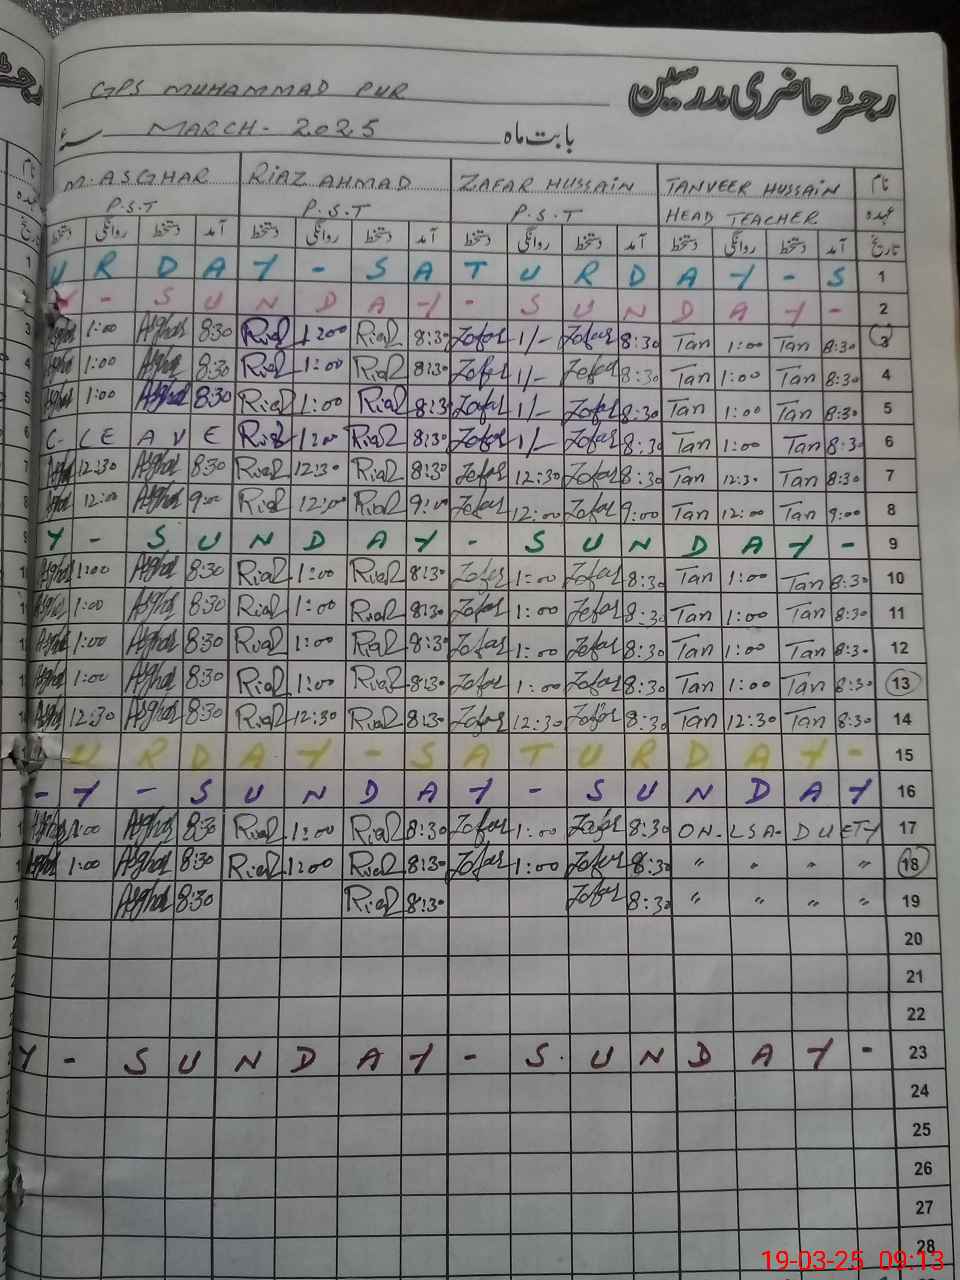 رجسٹر حاضری مدرسین
GPS MUHAMMAD PUR
بابت ماہ MARCH - 2025
M. ASGHAR RIAZ AHMAD ZAFAR HUSSAIN TANVEER HUSSAIN نام
P.S.T P.S.T P.S.T HEAD TEACHER عہدہ
دستخط روانگی دستخط آمد دستخط روانگی دستخط آمد دستخط روانگی دستخط آمد دستخط روانگی دستخط آمد تاریخ
U R D A Y - S A T U R D A Y - S 1
Y - S U N D A Y - S U N D A Y - 2
Asghar 1:00 Asghar 8:30 Riaz 1:00 Riaz 8:30 Zafar 1/- Zafar 8:30 Tan 1:00 Tan 8:30 3
Asghar 1:00 Asghar 8:30 Riaz 1:00 Riaz 8:30 Zafar 1/- Zafar 8:30 Tan 1:00 Tan 8:30 4
Asghar 1:00 Asghar 8:30 Riaz 1:00 Riaz 8:30 Zafar 1/- Zafar 8:30 Tan 1:00 Tan 8:30 5
C - L E A V E Riaz 1:00 Riaz 8:30 Zafar 1/- Zafar 8:30 Tan 1:00 Tan 8:30 6
Asghar 12:30 Asghar 8:30 Riaz 12:30 Riaz 8:30 Zafar 12:30 Zafar 8:30 Tan 12:30 Tan 8:30 7
Asghar 12:00 Asghar 9:00 Riaz 12:00 Riaz 9:00 Zafar 12:00 Zafar 9:00 Tan 12:00 Tan 9:00 8
Y - S U N D A Y - S U N D A Y - 9
Asghar 1:00 Asghar 8:30 Riaz 1:00 Riaz 8:30 Zafar 1:00 Zafar 8:30 Tan 1:00 Tan 8:30 10
Asghar 1:00 Asghar 8:30 Riaz 1:00 Riaz 8:30 Zafar 1:00 Zafar 8:30 Tan 1:00 Tan 8:30 11
Asghar 1:00 Asghar 8:30 Riaz 1:00 Riaz 8:30 Zafar 1:00 Zafar 8:30 Tan 1:00 Tan 8:30 12
Asghar 1:00 Asghar 8:30 Riaz 1:00 Riaz 8:30 Zafar 1:00 Zafar 8:30 Tan 1:00 Tan 8:30 13
Asghar 12:30 Asghar 8:30 Riaz 12:30 Riaz 8:30 Zafar 12:30 Zafar 8:30 Tan 12:30 Tan 8:30 14
U R D A Y - S A T U R D A Y - 15
- Y - S U N D A Y - S U N D A Y 16
Asghar 1:00 Asghar 8:30 Riaz 1:00 Riaz 8:30 Zafar 1:00 Zafar 8:30 ON - LSA - DUETY 17
Asghar 1:00 Asghar 8:30 Riaz 1:00 Riaz 8:30 Zafar 1:00 Zafar 8:30 " " " " 18
Asghar 8:30 Riaz 8:30 Zafar 8:30 " " " " 19
20
21
22
Y - S U N D A Y - S U N D A Y - 23
24
25
26
27
28
19-03-25 09:13